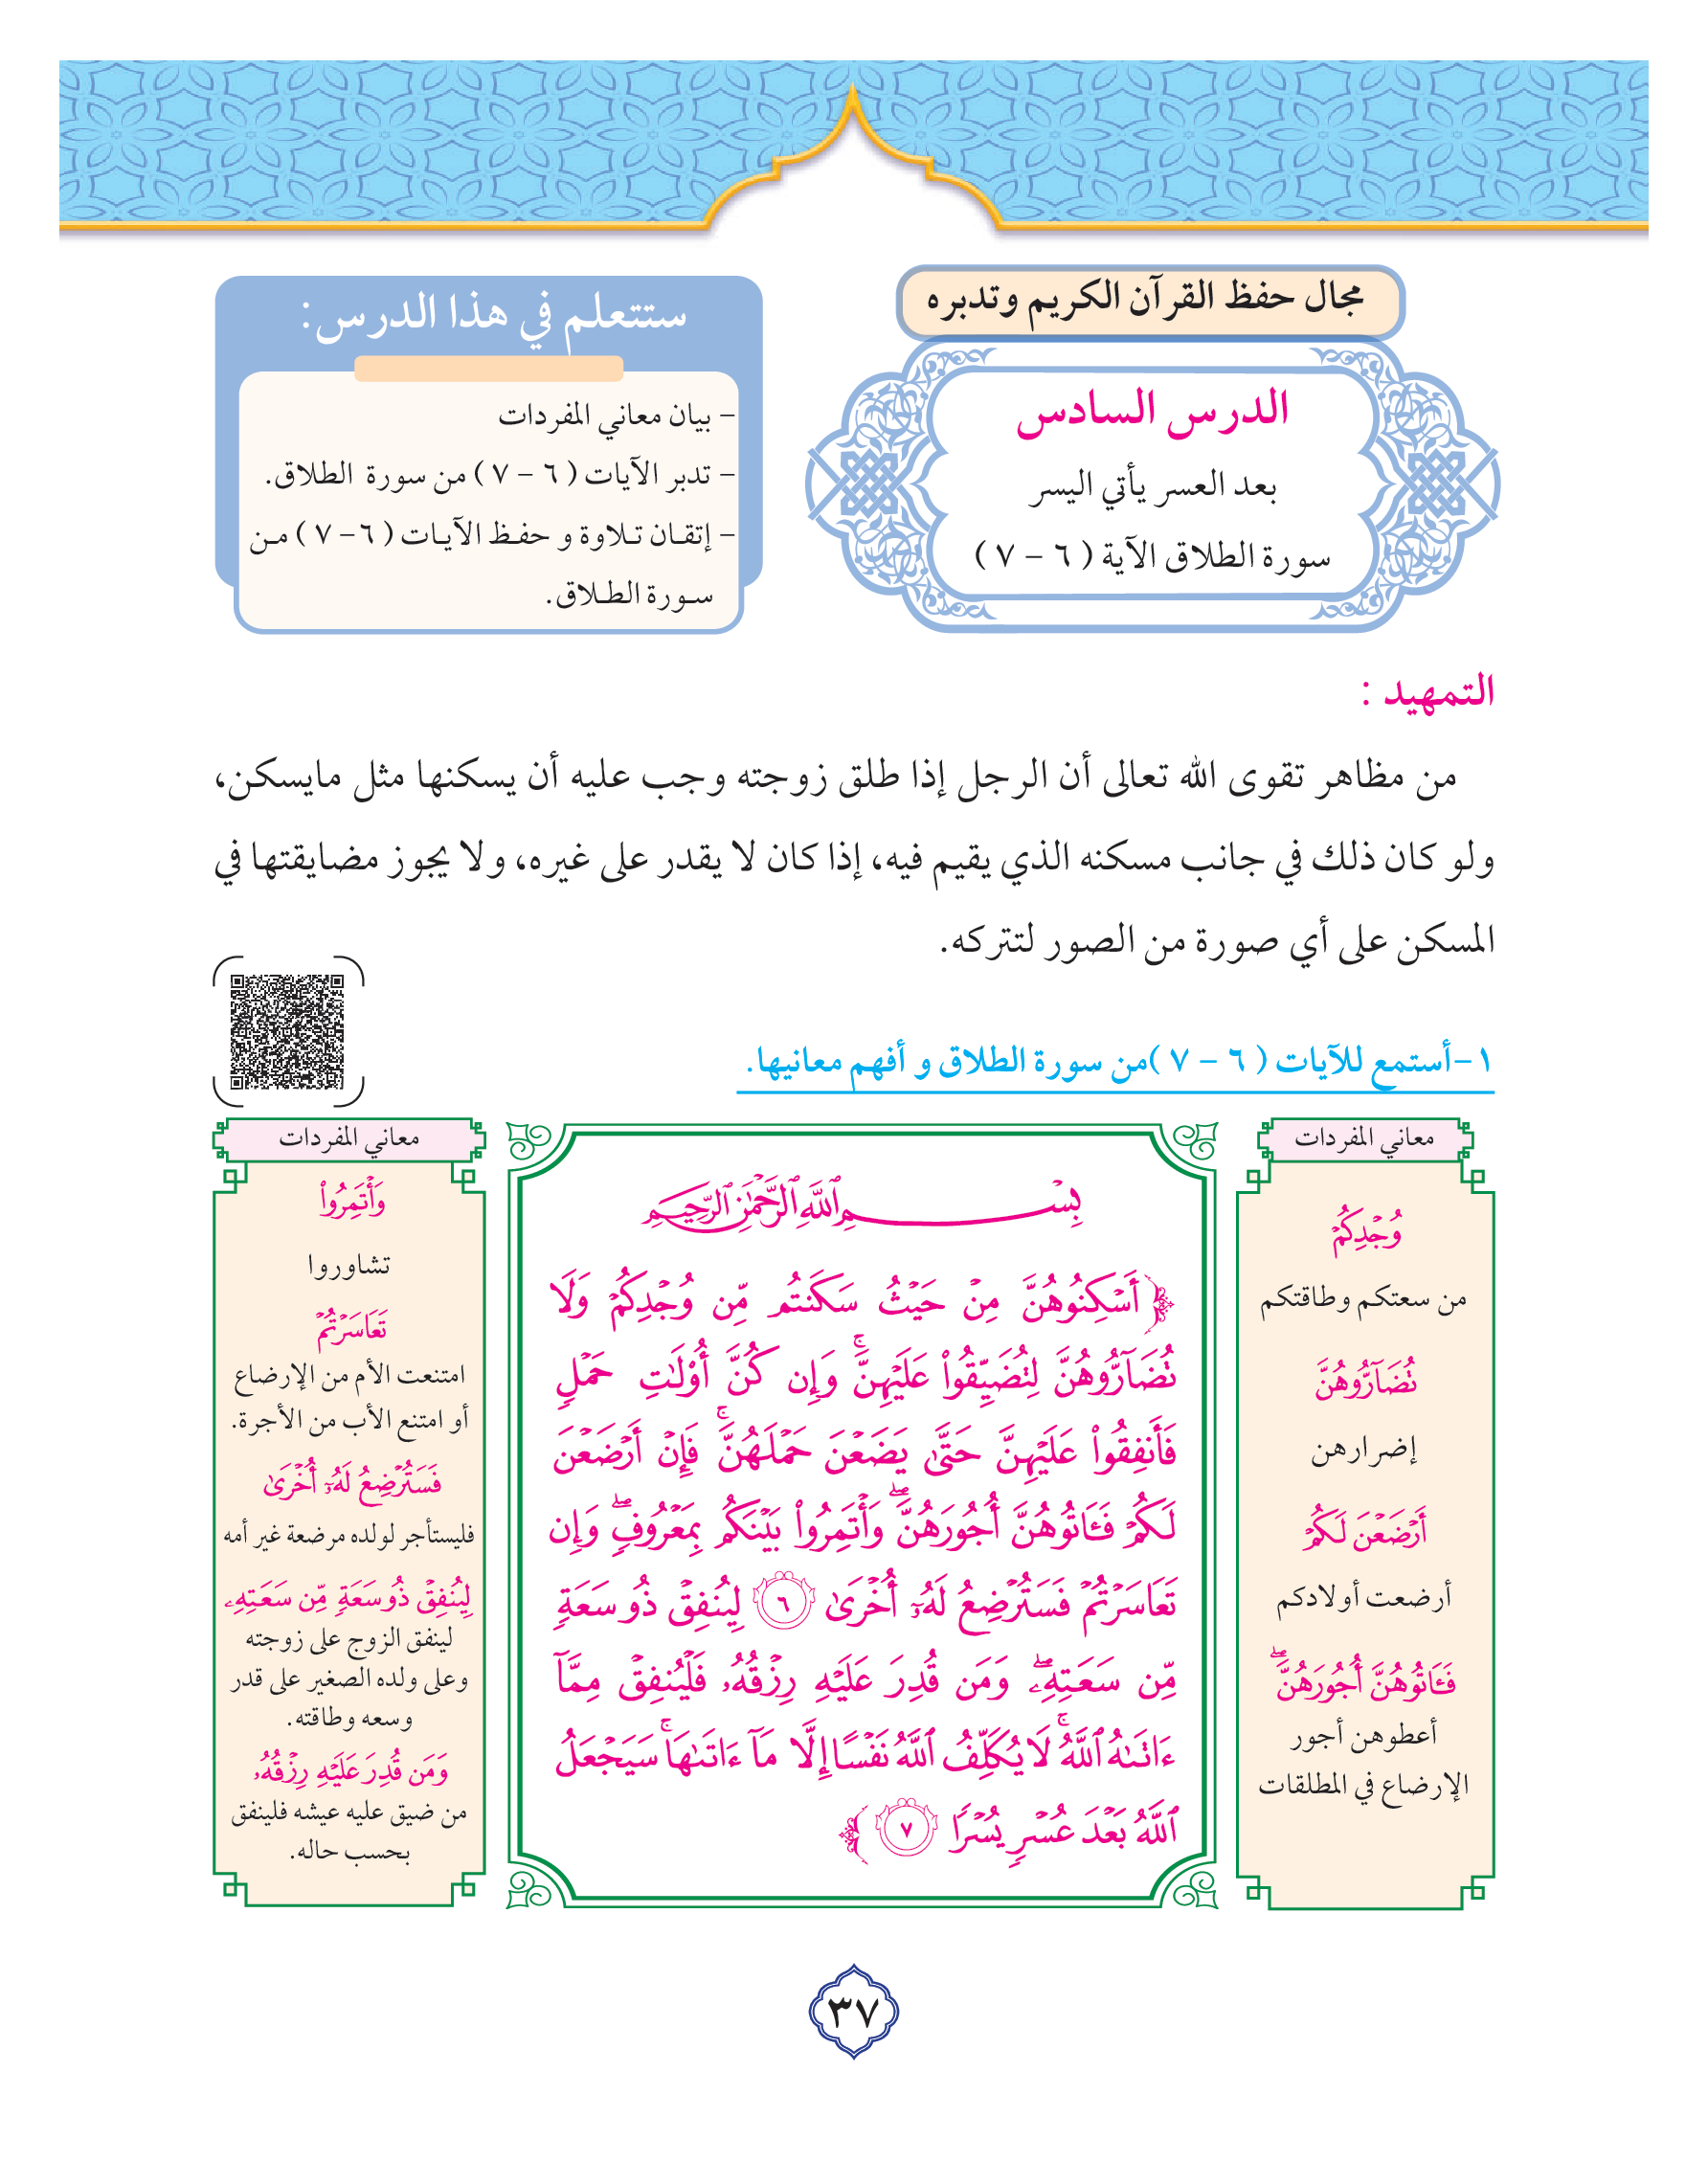 مجال حفظ القرآن الكريم وتدبره
الدرس السادس
بعد العسر يأتي اليسر
سورة الطلاق الآية ( ٦ - ٧ )
ستتعلم في هذا الدرس:
- بيان معاني المفردات
- تدبر الآيات ( ٦ - ٧ ) من سورة الطلاق.
- إتقان تلاوة و حفظ الآيات ( ٦- ٧ ) من
سورة الطلاق.
التمهيد :
من مظاهر تقوى الله تعالى أن الرجل إذا طلق زوجته وجب عليه أن يسكنها مثل مايسكن،
ولو كان ذلك في جانب مسكنه الذي يقيم فيه، إذا كان لا يقدر على غيره، ولا يجوز مضايقتها في
المسكن على أي صورة من الصور لتتركه.
١-أستمع للآيات ( ٦ - ٧ )من سورة الطلاق و أفهم معانيها.
معاني المفردات
وُجْدِكُمْ
من سعتكم وطاقتكم
تُضَآرُّوهُنَّ
إضرارهن
أَرْضَعْنَ لَكُمْ
أرضعت أولادكم
فَـَٔاتُوهُنَّ أُجُورَهُنَّۖ
أعطوهن أجور
الإرضاع في المطلقات
بِسْمِ ٱللَّهِ ٱلرَّحْمَٰنِ ٱلرَّحِيمِ
﴿أَسْكِنُوهُنَّ مِنْ حَيْثُ سَكَنتُم مِّن وُجْدِكُمْ وَلَا
تُضَآرُّوهُنَّ لِتُضَيِّقُوا۟ عَلَيْهِنَّۚ وَإِن كُنَّ أُو۟لَٰتِ حَمْلٍ
فَأَنفِقُوا۟ عَلَيْهِنَّ حَتَّىٰ يَضَعْنَ حَمْلَهُنَّۚ فَإِنْ أَرْضَعْنَ
لَكُمْ فَـَٔاتُوهُنَّ أُجُورَهُنَّۖ وَأْتَمِرُوا۟ بَيْنَكُم بِمَعْرُوفٍۖ وَإِن
تَعَاسَرْتُمْ فَسَتُرْضِعُ لَهُۥٓ أُخْرَىٰ ٦ لِيُنفِقْ ذُو سَعَةٍ
مِّن سَعَتِهِۦۖ وَمَن قُدِرَ عَلَيْهِ رِزْقُهُۥ فَلْيُنفِقْ مِمَّآ
ءَاتَىٰهُ ٱللَّهُۚ لَا يُكَلِّفُ ٱللَّهُ نَفْسًا إِلَّا مَآ ءَاتَىٰهَاۚ سَيَجْعَلُ
ٱللَّهُ بَعْدَ عُسْرٍ يُسْرًا ٧ ﴾
معاني المفردات
وَأْتَمِرُوا۟
تشاوروا
تَعَاسَرْتُمْ
امتنعت الأم من الإرضاع
أو امتنع الأب من الأجرة.
فَسَتُرْضِعُ لَهُۥٓ أُخْرَىٰ
فليستأجر لولده مرضعة غير أمه
لِيُنفِقْ ذُو سَعَةٍ مِّن سَعَتِهِۦ
لينفق الزوج على زوجته
وعلى ولده الصغير على قدر
وسعه وطاقته.
وَمَن قُدِرَ عَلَيْهِ رِزْقُهُۥ
من ضيق عليه عيشه فلينفق
بحسب حاله.
٣٧